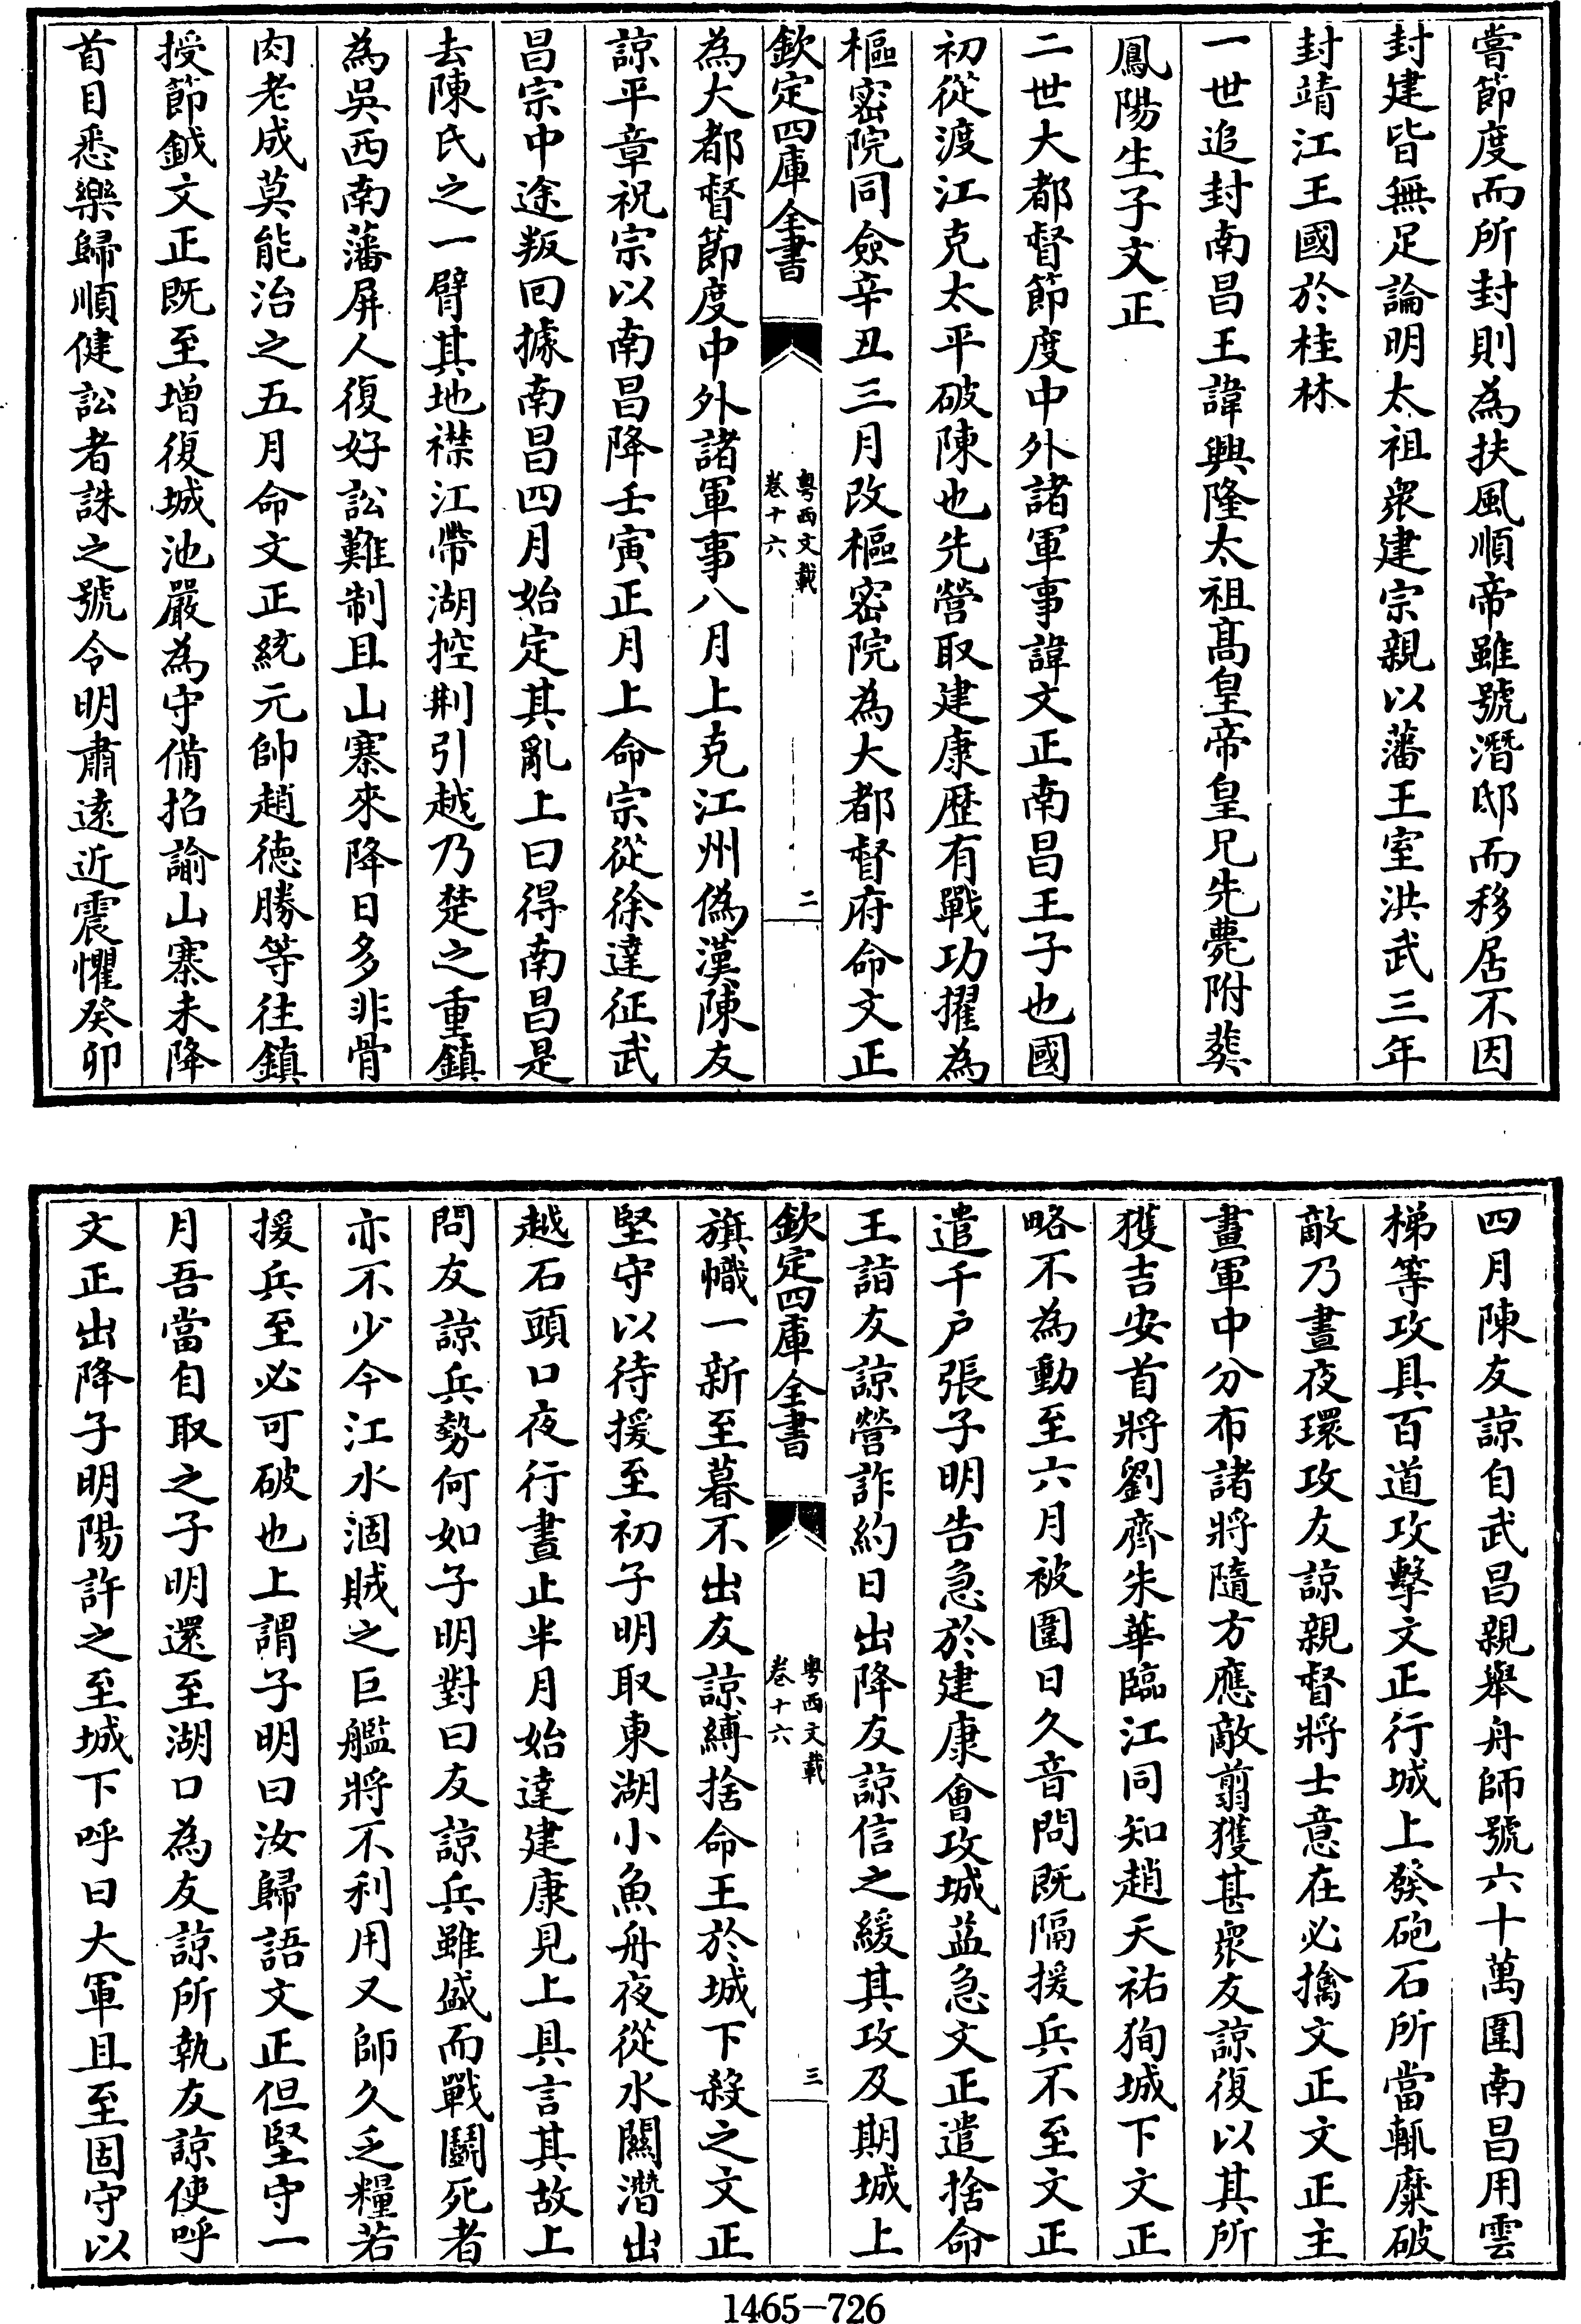 嘗節度而所封則為扶風順帝雖號潛邸而移居不因
封建皆無足論明太祖衆建宗親以藩王室洪武三年
封靖江王國於桂林
一世追封南昌王諱興隆太祖髙皇帝皇兄先薨附葬
鳳陽生子文正
二世大都督節度中外諸軍事諱文正南昌王子也國
初從渡江克太平破陳也先營取建康歴有戰功擢為
樞密院同僉辛丑三月改樞密院為大都督府命文正
欽定四庫全書
粤西文載
卷十六
二
為大都督節度中外諸軍事八月上克江州偽漢陳友
諒平章祝宗以南昌降壬寅正月上命宗從徐達征武
昌宗中途叛回據南昌四月始定其亂上曰得南昌是
去陳氏之一臂其地襟江帶湖控荆引越乃楚之重鎮
為吳西南藩屏人復好訟難制且山寨來降日多非骨
肉老成莫能治之五月命文正統元帥趙德勝等往鎮
授節鉞文正既至增復城池嚴為守備招諭山寨未降
首目悉樂歸順健訟者誅之號令明肅逺近震懼癸卯
四月陳友諒自武昌親舉舟師號六十萬圍南昌用雲
梯等攻具百道攻擊文正行城上發砲石所當輒糜破
敵乃晝夜環攻友諒親督將士意在必擒文正文正主
畫軍中分布諸將隨方應敵翦獲甚衆友諒復以其所
獲吉安首將劉齊朱華臨江同知趙天祐狥城下文正
略不為動至六月被圍日久音問既隔援兵不至文正
遣千户張子明告急於建康會攻城益急文正遣捨命
王詣友諒營詐約日出降友諒信之緩其攻及期城上
欽定四庫全書
粤西文載
卷十六
三
旗幟一新至暮不出友諒縛捨命王於城下殺之文正
堅守以待援至初子明取東湖小魚舟夜從水關潛出
越石頭口夜行晝止半月始達建康見上具言其故上
問友諒兵勢何如子明對曰友諒兵雖盛而戰鬭死者
亦不少今江水涸賊之巨艦將不利用又師久乏糧若
援兵至必可破也上謂子明曰汝歸語文正但堅守一
月吾當自取之子明還至湖口為友諒所執友諒使呼
文正出降子明陽許之至城下呼曰大軍且至固守以
1465-726